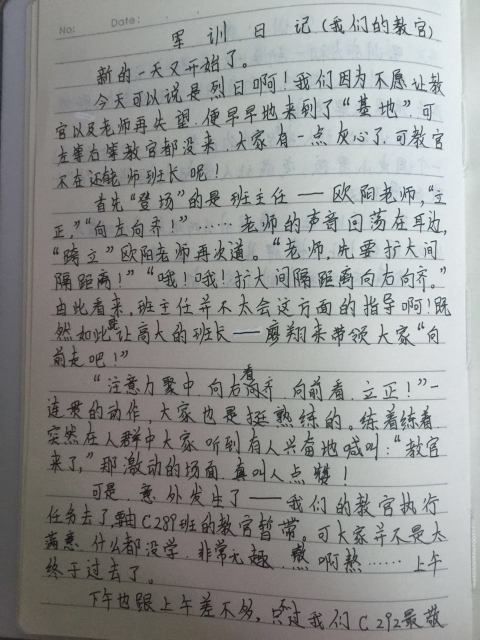 No:
Date:
军训日记(我们的教官)
新的一天又开始了。
今天可以说是烈日啊!我们因为不愿让教
官以及老师再失望,便早早地来到了“基地”,可
左等右等教官都没来,大家有一点灰心了,可教官
不在还有师班长呢!
首先“登场”的是班主任——欧阳老师,“立
正,”“向左向齐!”……老师的声音回荡在耳边,
“跨立”欧阳老师再次道。“老师,先要扩大间
隔距离!”“哦!哦!扩大间隔距离向右向齐。”
由此看来,班主任并不太会这方面的指导啊!既
然如此就让高大的班长——廖翔来带领大家“向
前走吧!”
“注意力聚中,向右看齐,向前看,立正!”一
连贯的动作,大家也是挺熟练的。练着练着,
突然在人群中大家听到有人兴奋地喊叫:“教官
来了,”那激动的场面,真叫人点赞!
可是,意外发生了——我们的教官执行
任务去了,要由C289班的教官暂带。可大家并不是太
满意,什么都没学,非常无趣,熬啊熬……上午
终于过去了。
下午也跟上午差不多,只过我们C292最敬